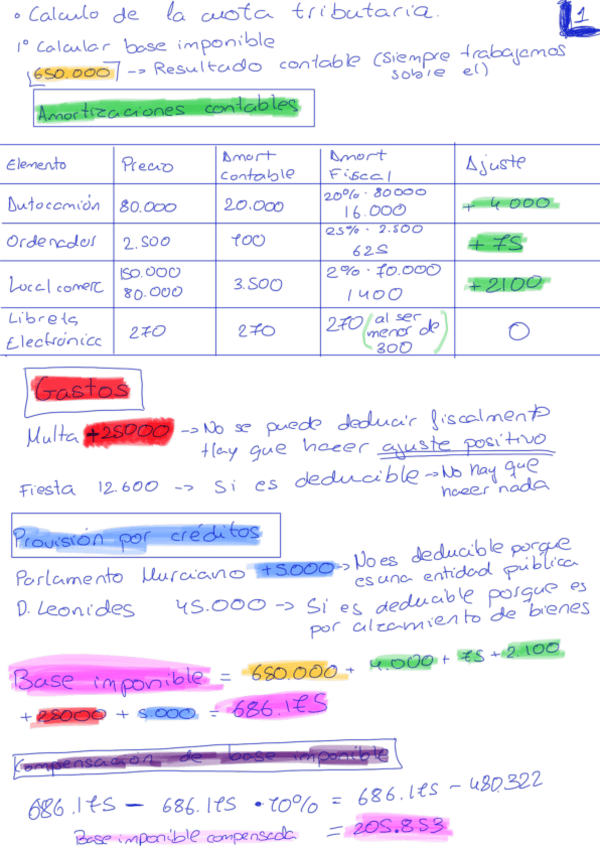 • Calculo de la cuota tributaria.
1
1º Calcular base imponible
650.000 -> Resultado contable (siempre trabajamos
sobre el)
Amortizaciones contables
Elemento Precio Amort contable Amort Fiscal Ajuste
Autocamión 80.000 20.000 20% · 80000 16.000 + 4000
Ordenador 2.500 700 25% · 2.500 625 + 75
Local comerc 150.000 80.000 3.500 2% · 70.000 1400 + 2100
Libreta Electrónica 270 270 270 (al ser menor de 300) 0
Gastos
Multa +25000 -> No se puede deducir fiscalmente
Hay que hacer ajuste positivo
Fiesta 12.600 -> Si es deducible -> No hay que
hacer nada
Provisión por créditos
Parlamento Murciano +5.000 -> No es deducible porque
es una entidad pública
D. Leonides 45.000 -> Si es deducible porque es
por alzamiento de bienes
Base imponible = 650.000 + 4.000 + 75 + 2.100
+ 25000 + 5.000 = 686.175
Compensación de base imponible
686.175 - 686.175 · 70% = 686.175 - 480.322
Base imponible compensada = 205.853